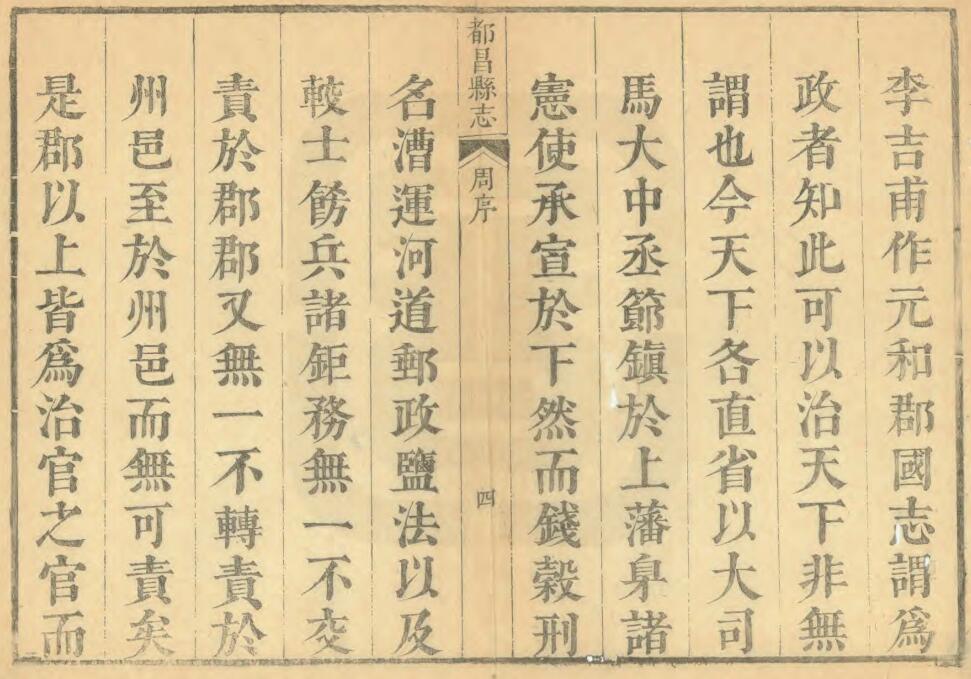 李吉甫作元和郡國志謂爲
政者知此可以治天下非無
謂也今天下各直省以大司
馬大中丞節鎮於上藩臬諸
憲使承宣於下然而錢穀刑
都昌縣志
周序
四
名漕運河道郵政鹽法以及
較士餝兵諸鉅務無一不交
責於郡郡又無一不轉責於
州邑至於州邑而無可責矣
是郡以上皆爲治官之官而